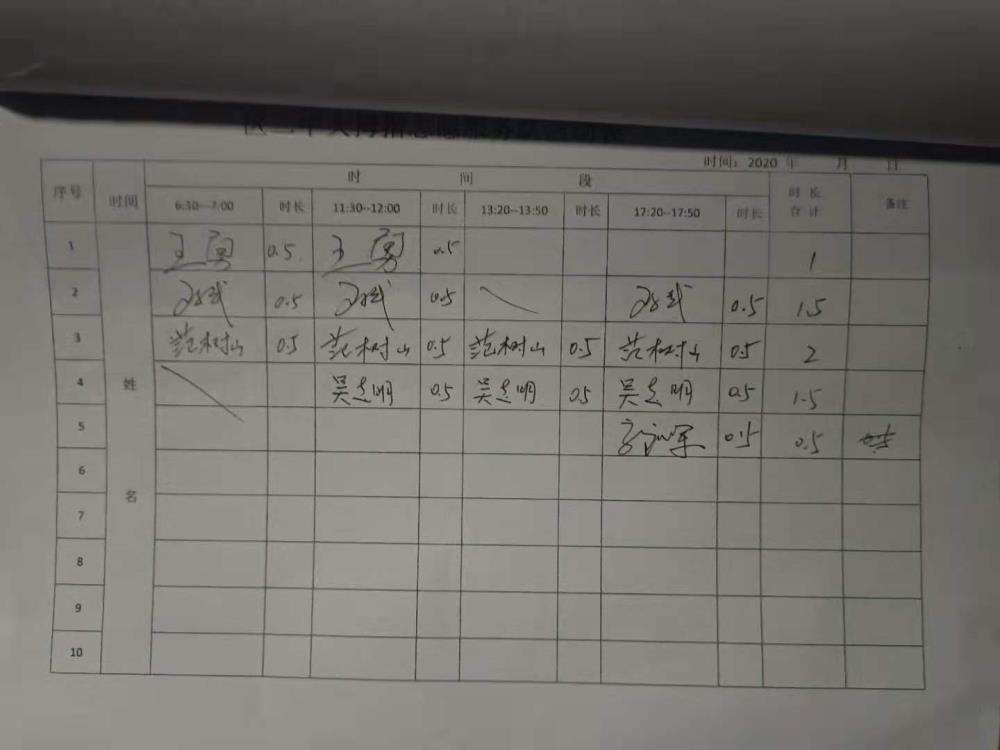 时间：2020 年 月 日
序号 时间 时 间 段 时 长 合 计 备注
6:30--7:00 时长 11:30--12:00 时长 13:20--13:50 时长 17:20--17:50 时长
姓 名
1 王勇 0.5 王勇 0.5 1
2 0.5 0.5 0.5 1.5
3 范树山 0.5 范树山 0.5 范树山 0.5 范树山 0.5 2
4 吴志明 0.5 吴志明 0.5 吴志明 0.5 1.5
5 0.5 0.5
6
7
8
9
10